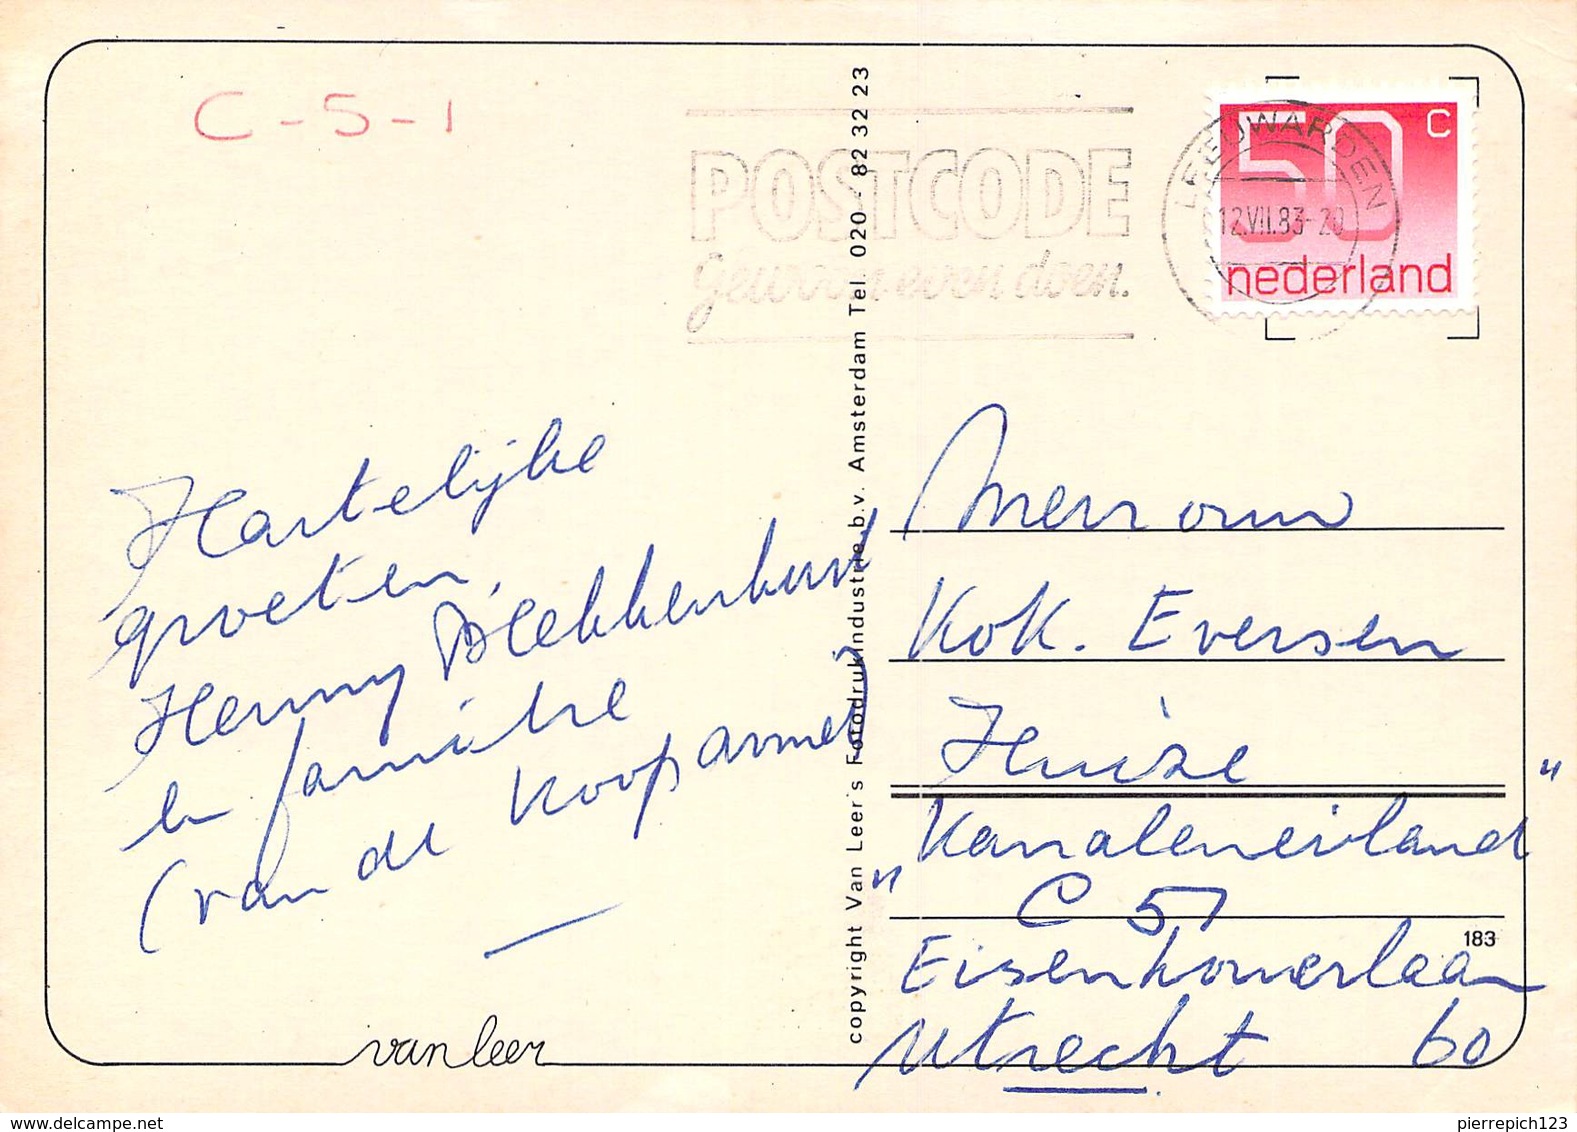 C-5-1
POSTCODE
gewoon even doen.
LEEUWARDEN
12.VII.83-20
50 C
nederland
Hartelijke
groeten,
Henny Blekkenhorst
en familie
(van de Koopsarmel)
van leer
copyright Van Leer's Fotodrukindustrie b.v. Amsterdam Tel. 020 - 82 32 23
Mevrouw
Kok. Eversen
Huize
"Kanaleneiland"
C 51
183
Eisenhowerlaan
Utrecht 60
delcampe.net
pierrepich123